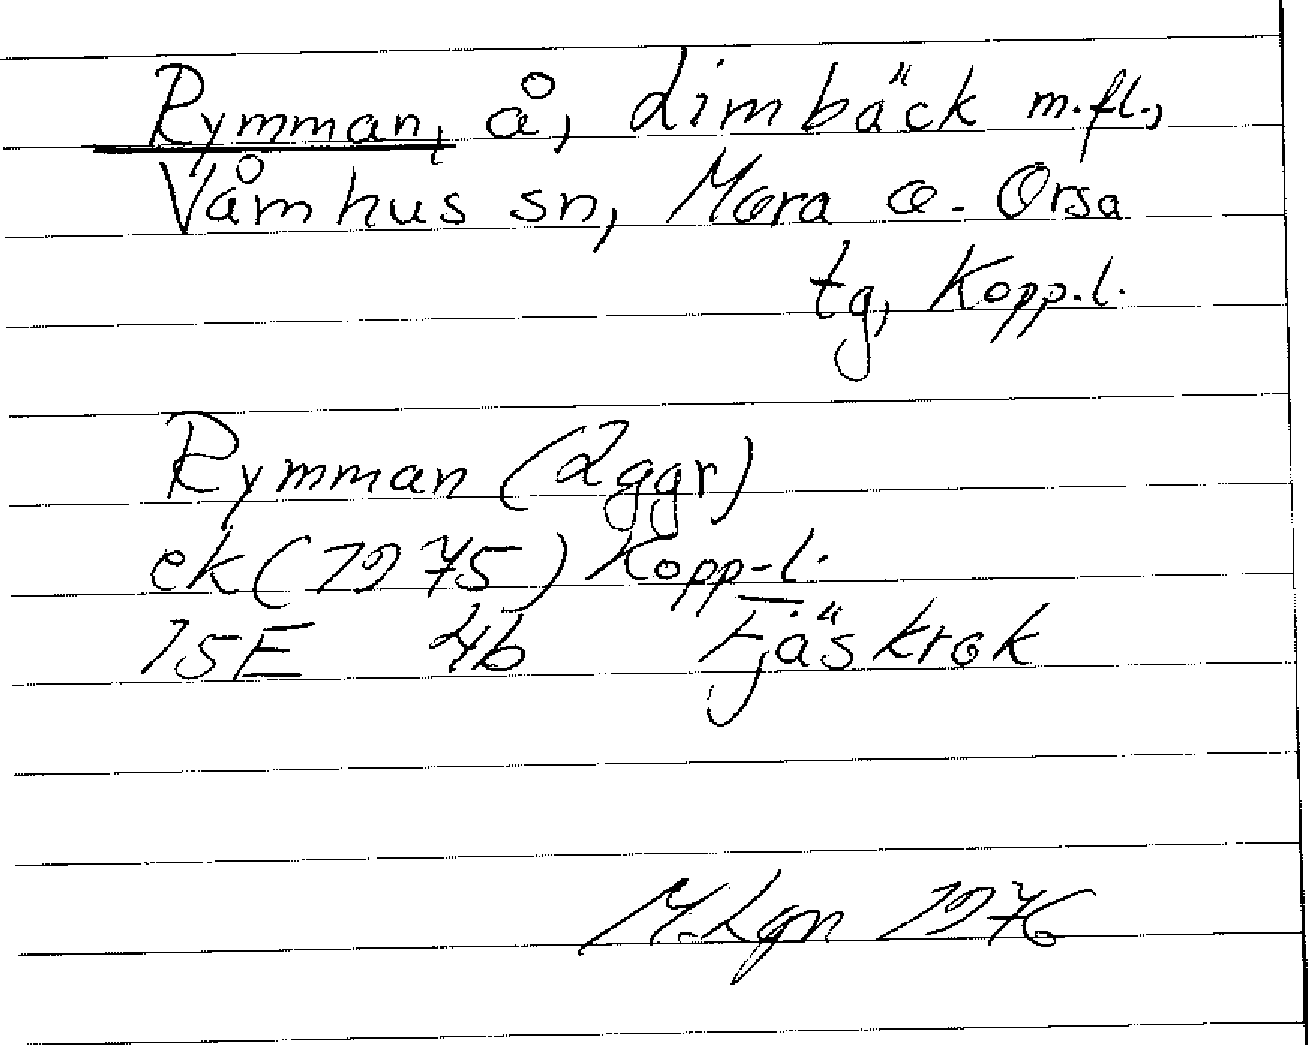 Rymman, å, Limbäck m.fl.,
Våmhus sn, Mora o. Orsa
tg, Kopp.l.
Rymman (2ggr)
ek (1975) Kopp.l.
15E 4b Fjäskrok
M.Lgn 1976